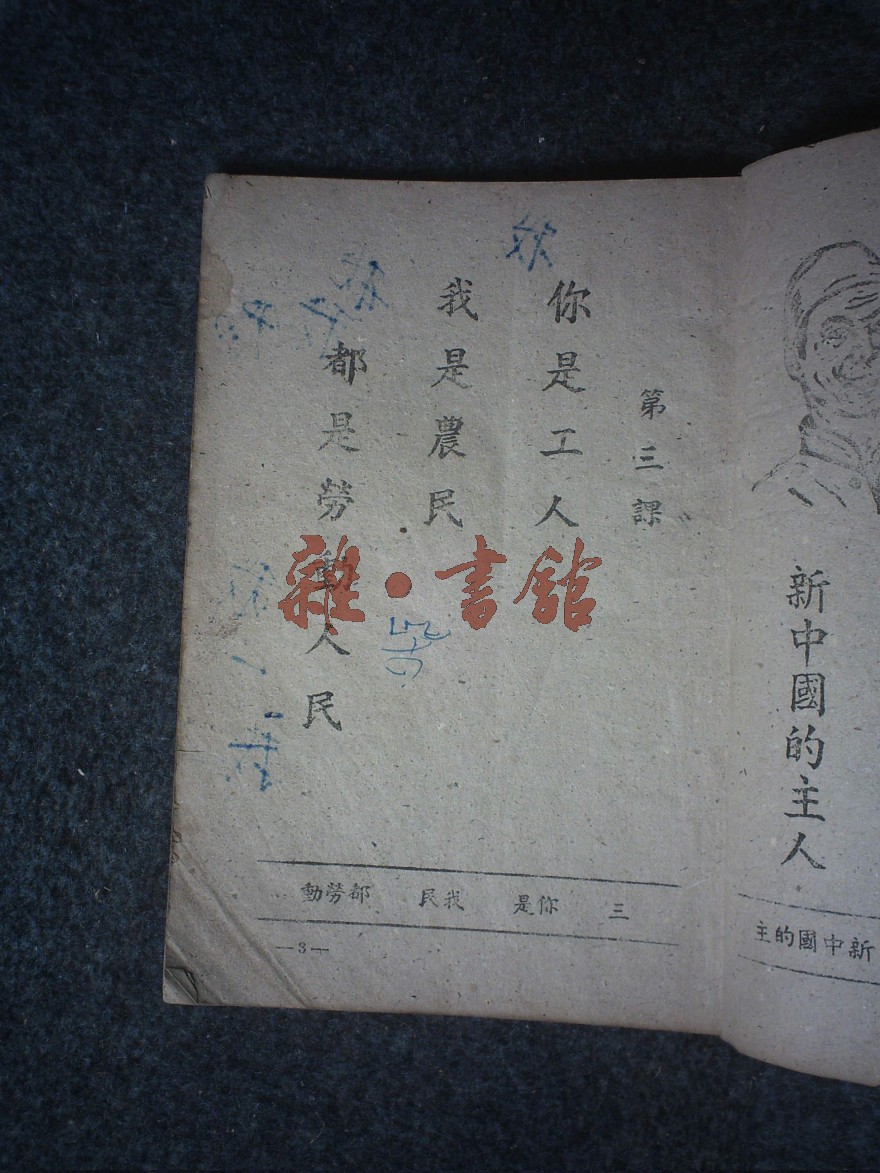 新中國的主人
新中國的主
第三課
你是工人
我是農民
都是勞動人民
三 你是 我民 都勞動
—3—
雜·書館